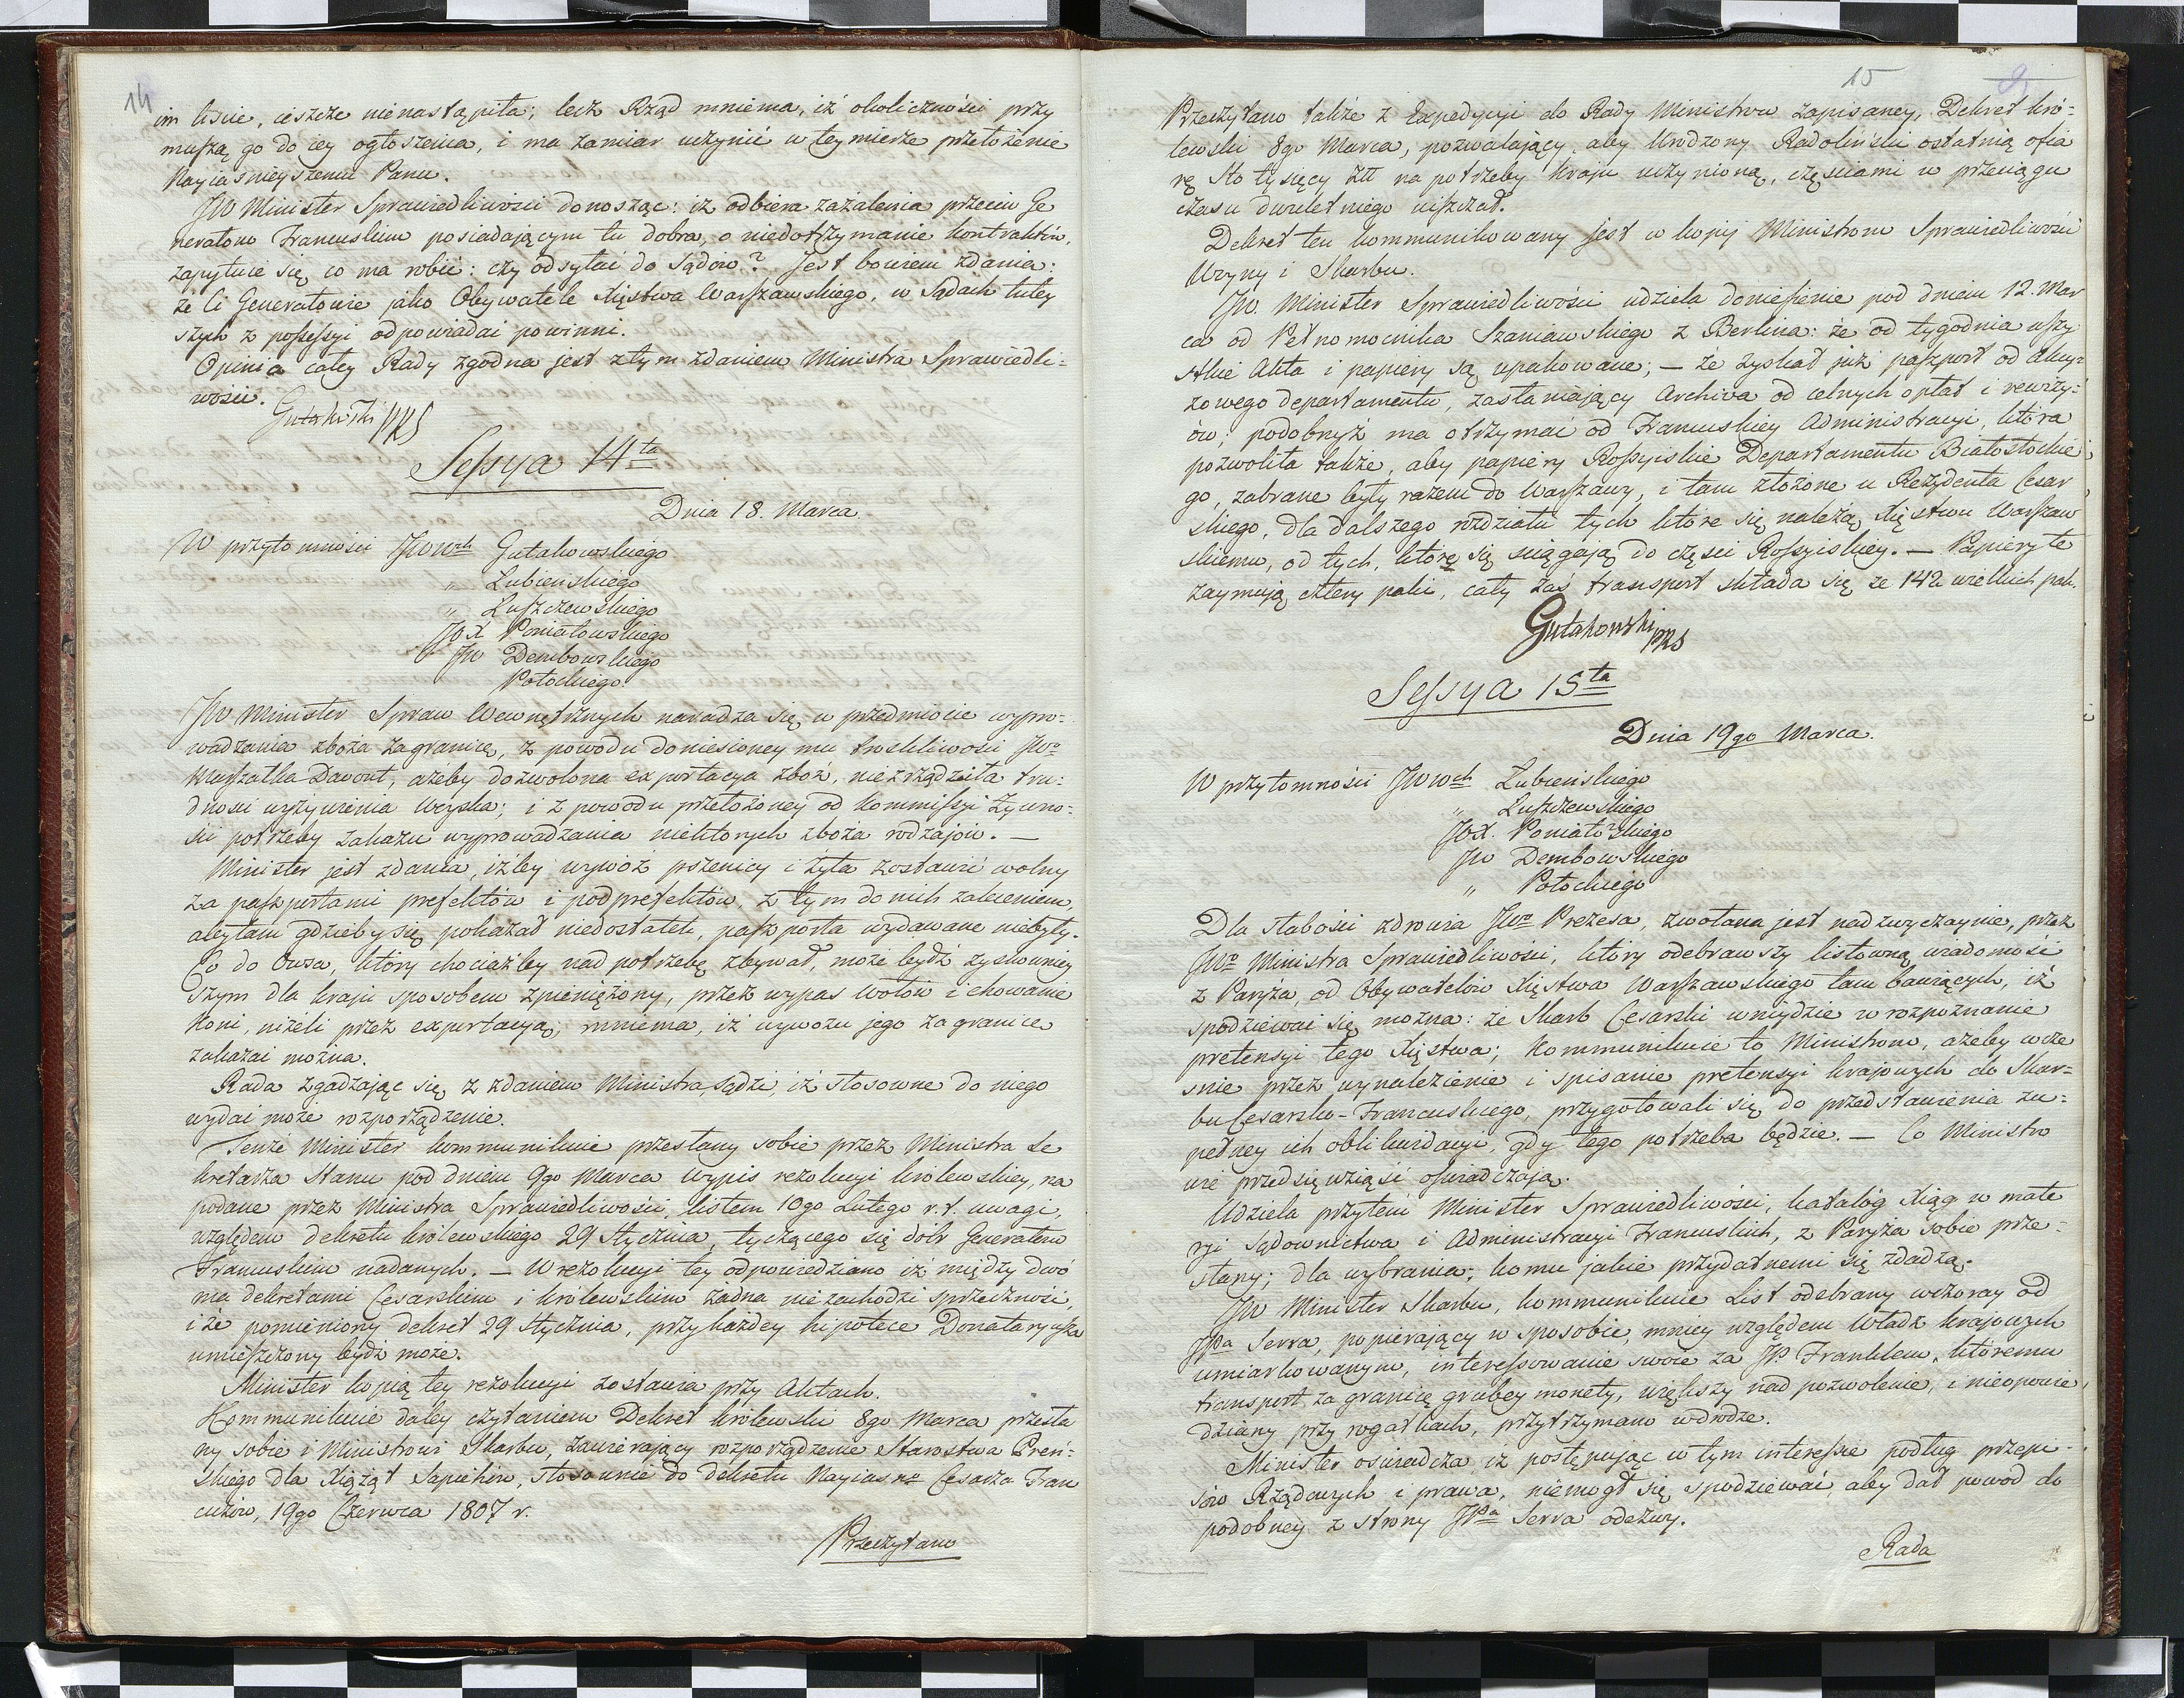 14
im liście, ieszcze nienastąpiła; lecz Rząd mniema, iż okoliczności przy
muszą go do iey ogłoszenia, i ma zamiar uczynić w tey mierze przełożenie
Nayiaśnieyszemu Panu.
JW Minister Sprawiedliwości donosząc: iż odbiera zażalenia przeciw Ge
nerałom Francuskim posiadającym tu dobra, o niedotrzymanie kontraktów,
zapytuie się co ma robić: czy odsyłać do Sądów? Jest bowiem zdania:
że Ci Generałowie jako Obywatele Xięstwa Warszawskiego, w Sądach tutey
szych z possessyi odpowiadać powinni.
Opinia całey Rady zgodna jest z tym zdaniem Ministra Sprawiedli-
wości.
Gutakowski PRS
Sessya 14ta
Dnia 18. Marca.
W przytomności JWWch Gutakowskiego
„ Łubieńskiego
„ Łuszczewskiego
JOX Poniatowskiego
JW Dembowskiego
Potockiego.
JW Minister Spraw Wewnętrznych naradza się w przedmiocie wypro-
wadzania zboża zagranicę, z powodu doniesioney mu troskliwości JWo
Marszałka Davout, ażeby dozwolona exportacya zboż, niezrządziła tru-
dności wyżywienia Woyska; i z powodu przełożoney od Kommissyi Żywno-
ści potrzeby zakazu wyprowadzania niektorych zboża rodzajów. —
Minister jest zdania, iżby wywóz pszenicy i żyta zostawić wolny
za paszportami prefektów i podprefektów, z tym do nich zaleceniem,
aby tam gdzieby się pokazał niedostatek, paszporta wydawane niebyły.
Co do Owsa, który chociażby nad potrzebę zbywał, może bydź zyskowniey
szym dla kraju sposobem zpieniężony, przez wypas Wołów i chowanie
Koni, niżeli przez exportacyą; mniema, iż wywozu jego za granice
zakazać można.
Rada zgadzając się z zdaniem Ministra, sądzi, iż stosowne do niego
wydać może rozporządzenie.
Tenże Minister kommunikuie przesłany sobie przez Ministra Se
kretarza Stanu pod dniem 9go Marca wypis rezolucyi królewskiey, na
podane przez Ministra Sprawiedliwości, listem 10go Lutego r.t. uwagi,
względem dekretu królewskiego 29 Stycznia, tyczącego się dóbr Generałom
Francuskim nadanych. — W rezolucyi tey odpowiedziano iż między dwó
ma dekretami Cesarskim i królewskim żadna nie zachodzi sprzeczność,
i że pomieniony dekret 29 Stycznia, przy każdey hipotece Donataryusza
umieszczony bydź może.
Minister kopią tey rezolucyi zostawia przy Aktach.
Kommunikuie daley czytaniem Dekret królewski 8go Marca przesła
ny sobie i Ministrowi Skarbu, zawierający rozporządzenie Starostwa Preń-
skiego dla Xiążąt Sapiehów, stosownie do dekretu Nayiasno Cesarza Fran
cuzów, 19go Czerwca 1807 r.
Przeczytano
15
Przeczytano także z Expedycyi do Rady Ministrów zapisaney, Dekret kró-
lewski 8go Marca, pozwalający, aby Urodzony Radoliński ostatnią ofia
rę sto tysięcy Złł na potrzeby kraju uczynioną, częściami w przeciągu
czasu dwuletniego uiszczał.
Dekret ten kommunikowany jest w kopij Ministrom Sprawiedliwości
Woyny i Skarbu.
JW. Minister Sprawiedliwości udziela doniesienie pod dniem 12. Mar
ca od Pełnomocnika Szaniawskiego z Berlina: że od tygodnia wszy
stkie Akta i papiery są upakowane; — że zyskał już paszport od akcy-
zowego departamentu, zasłaniający Archiva od celnych opłat i rewizy-
ów; podobnyż ma otrzymać od Francuskiey Administracyi, która
pozwoliła także, aby papiery Rossyiskie Departamentu Białostockie-
go, zabrane były razem do Warszawy, i tam złożone u Rezydenta Cesar
skiego, dla dalszego rozdziału tych które się należą Xięstwu Warszaw
skiemu, od tych, które się sciągają do części Rossyiskiey. — Papiery te
zaymują cztery paki, cały zaś transport składa się ze 142 wielkich pak.
Gutakowski PRS
Sessya 15ta
Dnia 19go Marca.
W przytomności JWWch Łubieńskiego
„ Łuszczewskiego
JOX. Poniatowskiego
JW Dembowskiego
„ Potockiego
Dla słabości zdrowia JWo Prezesa, zwołana jest nadzwyczaynie, przez
JWo Ministra Sprawiedliwości, który odebrawszy listowną wiadomość
z Paryża, od Obywatelów Xięstwa Warszawskiego tam bawiących, iż
spodziewać się można: że Skarb Cesarski wniydzie w rozpoznanie
pretensyi tego Xięstwa; Kommunikuie to Ministrom, ażeby wcze
śnie przez wynalezienie i spisanie pretensyi krajowych do Skar-
bu Cesarsko-Francuskiego, przygotowali się do przedstawienia zu-
pełney ich oblikwidacyi, gdy tego potrzeba będzie. — Co Ministro
wie przedsięwziąść oświadczają.
Udziela przytem Minister Sprawiedliwości, katalóg Xiąg w mate
ryi Sądownictwa i Administracyi Francuskich, z Paryża sobie prze-
słany; dla wybrania; komu jakie przydatnemi się zdadzą.
JW Minister Skarbu, kommunikuie List odebrany wczoray od
JPa Serra, popierający w sposobie, mniey względem Władz krajowych
umiarkowanym, interessowanie swoie za JP Franklem, któremu
transport za granicę grubey monety, większy nad pozwolenie, i nieopowie
dziany przy rogatkach, przytrzymano w drodze.
Minister oświadcza, iż postępując w tym interessie podług przepi-
sów Rządowych i prawa, niemogł się spodziewać, aby dał powod do
podobney z strony JPa Serra odezwy.
Rada